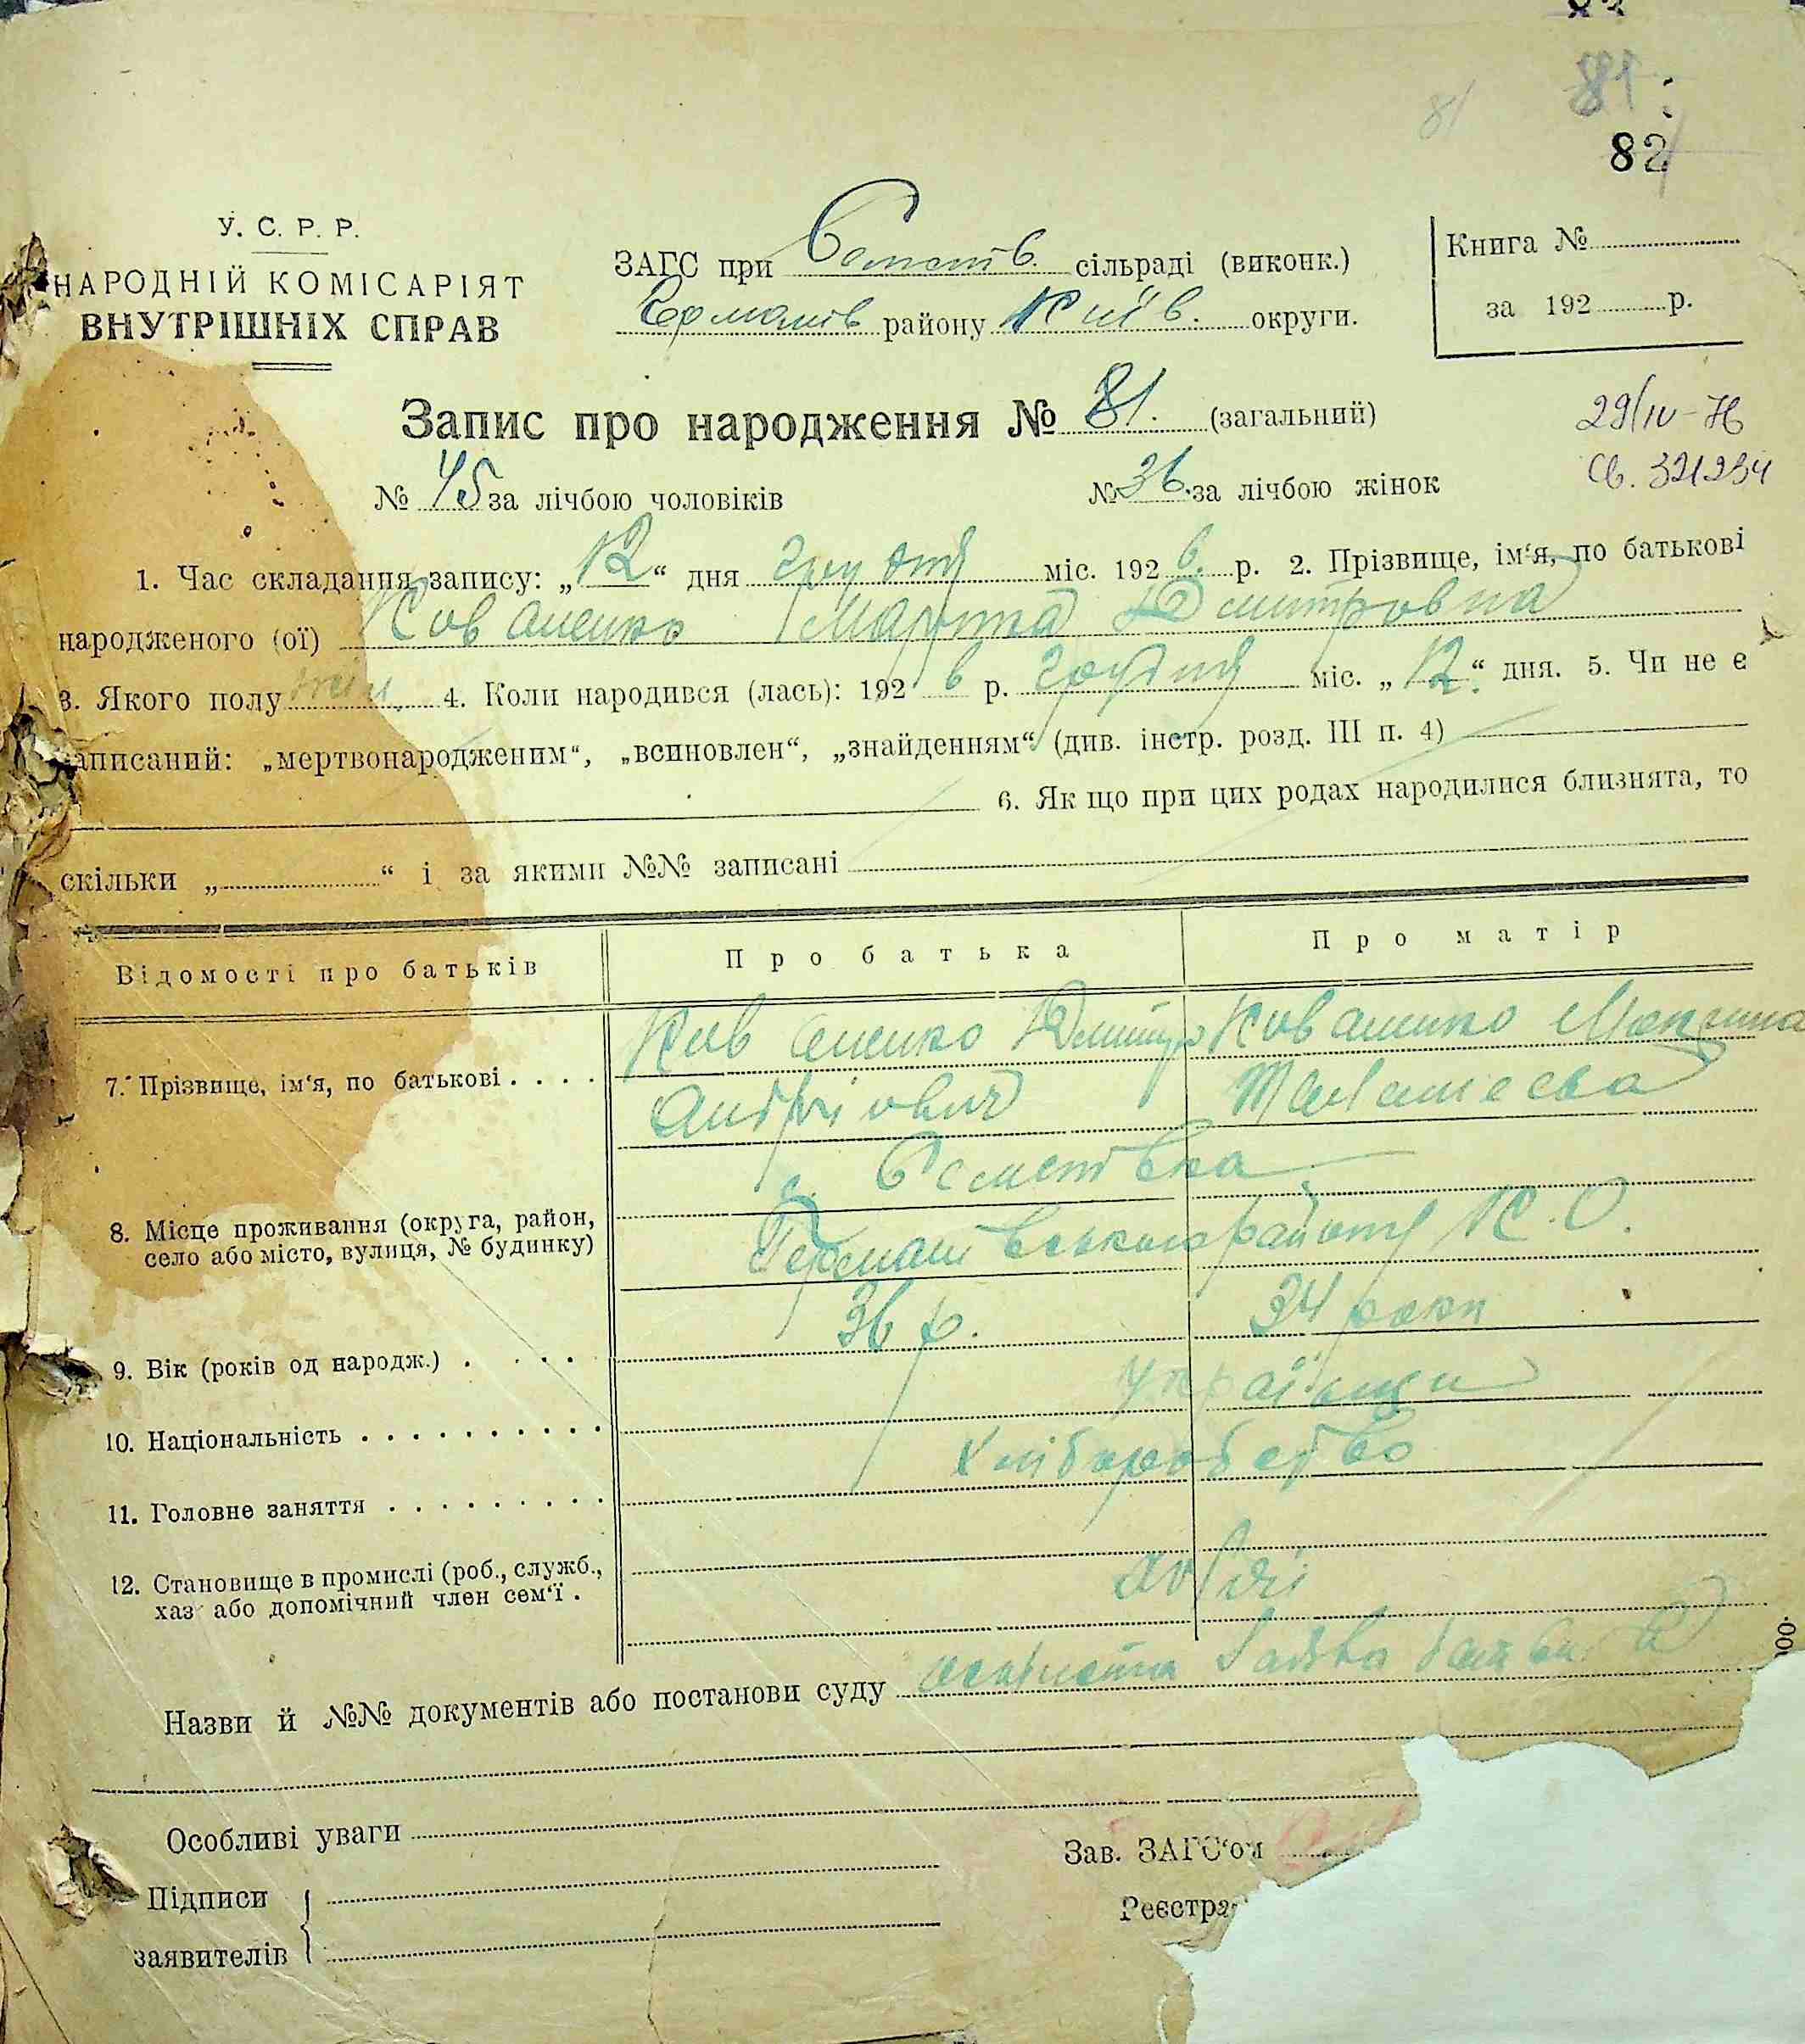 81
81
82
У. С. Р. Р.
НАРОДНІЙ КОМІСАРІЯТ
ВНУТРІШНІХ СПРАВ
ЗАГС при сільраді (виконк.)
району Київ. округи.
Книга №
за 192 р.
Запис про народження № 81. (загальний)
29/IV-76
св. 321234
№ 45 за лічбою чоловіків № 36. за лічбою жінок
1. Час складання запису: „12“ дня грудня міс. 192 6. р. 2. Прізвище, ім‘я, по батькові
народженого (ої) Коваленко Марина Дмитровна
3. Якого полу жін. 4. Коли народився (лась): 192 6 р. грудня міс. „12.“ дня. 5. Чи не є
записаний: „мертвонародженим“, „всиновлен“, „знайденням“ (див. інстр. розд. III п. 4)
6. Як що при цих родах народилися близнята, то
скільки „ “ і за якими №№ записані
Відомості про батьків Про батька Про матір
7. Прізвище, ім‘я, по батькові . . . . Коваленко Дмитро Коваленко
Андрієвич
8. Місце проживання (округа, район,
село або місто, вулиця, № будинку)
району К. О.
9. Вік (років од народж.) . . . . 36 р. 34 роки
10. Національність . . . . . . . . . . українці
11. Головне заняття . . . . . . . . . хліборобство
12. Становище в промислі (роб., служб.,
хаз або допомічний член сем‘ї .
Назви й №№ документів або постанови суду
Особливі уваги
Зав. ЗАГС‘ом
Підписи
Реєстра
заявителів